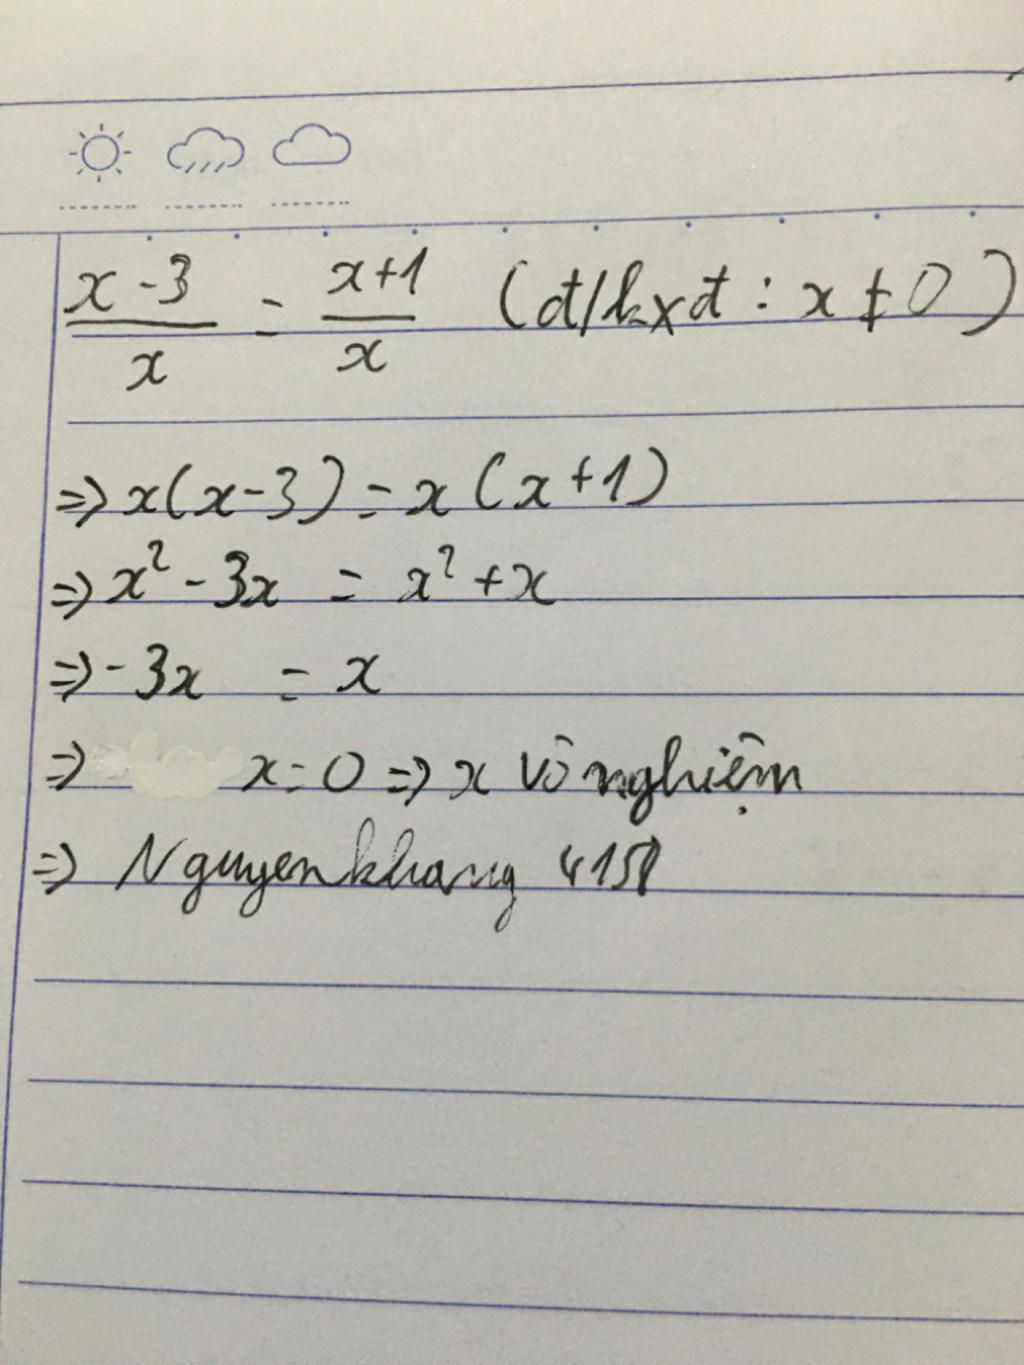 x-3/x = x+1/x (đ/kxđ : x ≠ 0)
=> x(x-3) = x(x+1)
=> x² - 3x = x² + x
=> -3x = x
=> x = 0 => x vô nghiệm
=> Nguyenkhang 4158